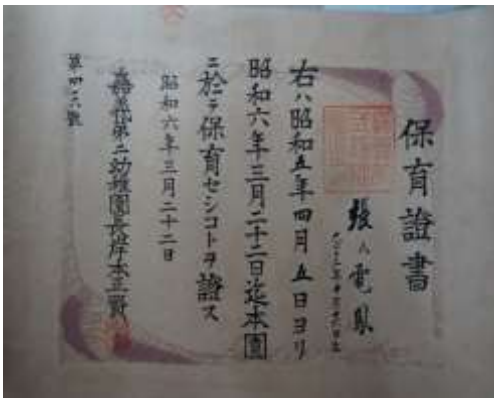 保育證書
張氏電鳳
右ハ昭和五年四月五日ヨリ
昭和六年三月二十二日迄本園
ニ於テ保育セシコトヲ證ス
昭和六年三月二十二日
嘉義第二幼稚園長岸本正賢
第四六號